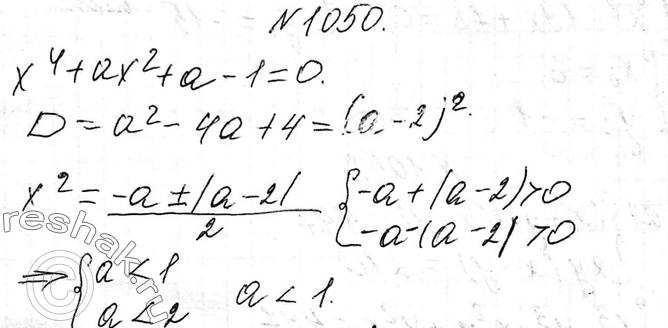 N1050.
x⁴+ax²+a-1=0.
D=a²-4a+4=(a-2)².
x²=(-a±|a-2|)/2 {-a+|a-2|>0
-a-|a-2|>0
⇒{a<1
a<2 a<1.
reshak.ru